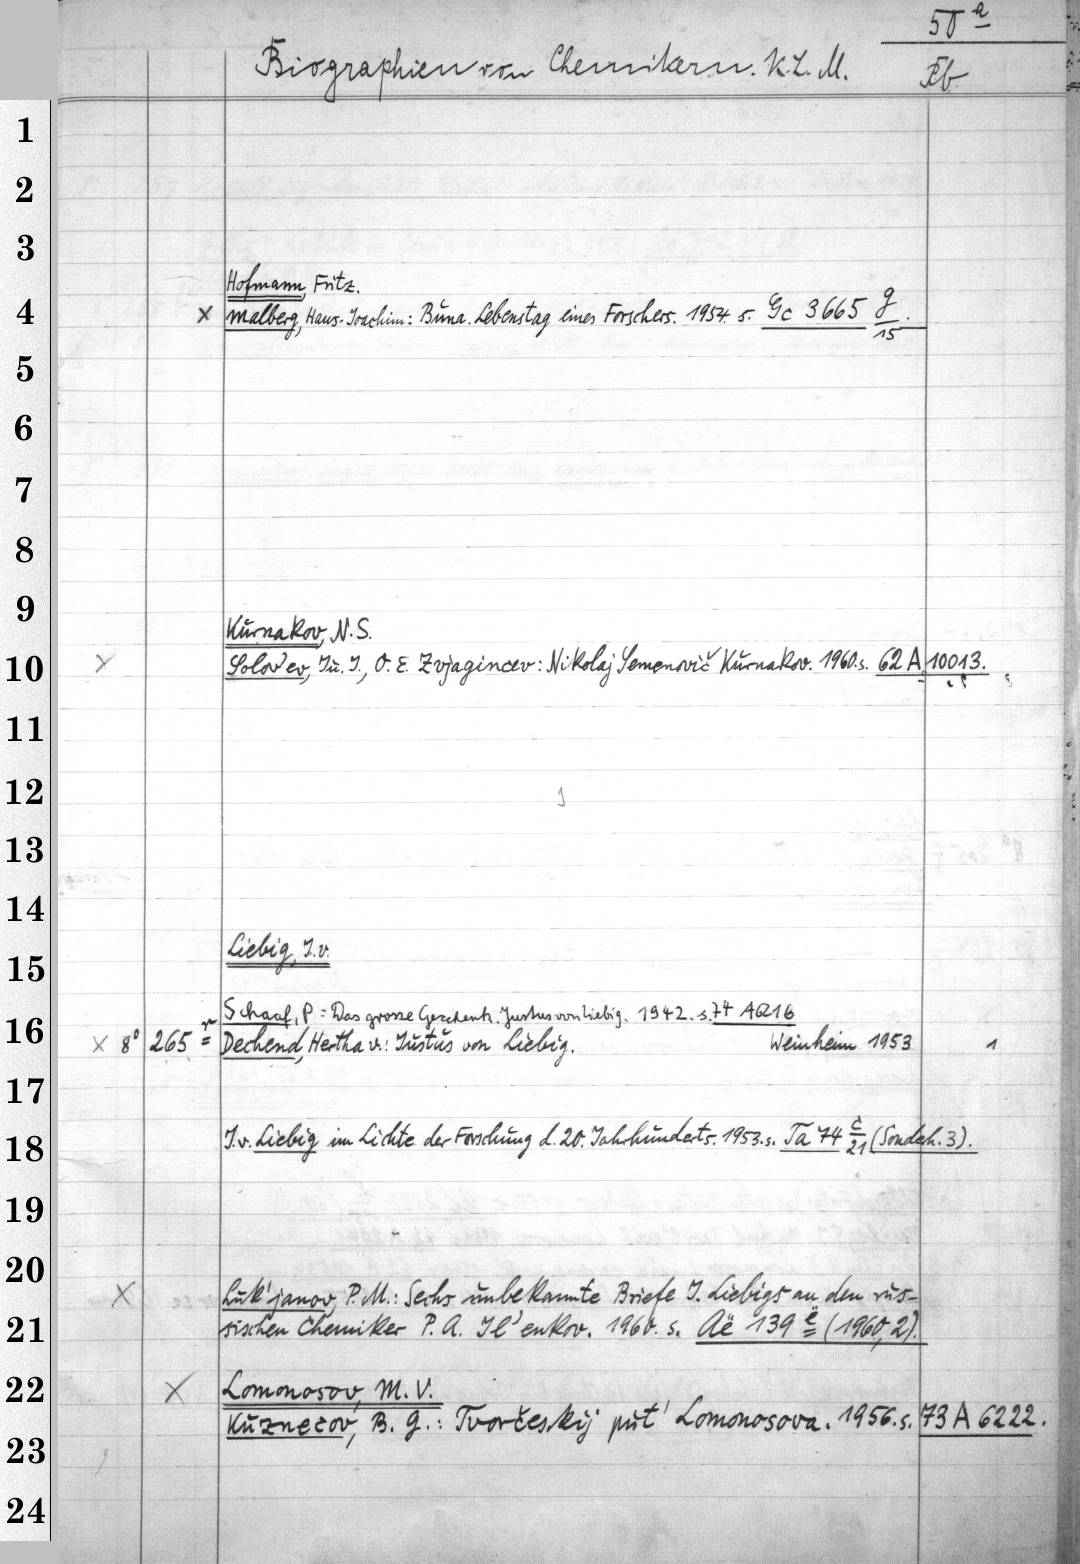 50 a
Biographien von Chemikern. K.L.M.
Pb.
1
2
3
Hofmann, Fritz.
4 x Malberg, Hans-Joachim: Buna. Lebenstag eines Forschers. 1954. s. Gc 3665 g/15.
5
6
7
8
9
Kurnakov, N.S.
10 x Solov'ev, Ju. I., O. E. Zvjagincev: Nikolaj Semenovič Kurnakov. 1960. s. 62 A 10013.
11
12
13
14
Liebig, J.v.
15
Schaaf, P.: Das grosse Geschenk. Justus von Liebig. 1942. s. 74 A 6216
16 x 8° 265 r Dechend, Hertha v.: Justus von Liebig. Weinheim 1953 1
17
18 J.v. Liebig im Lichte der Forschung d. 20. Jahrhunderts. 1953. s. Ta 74 č/21 (Sonderh. 3).
19
20 x Luk'janov, P.M.: Sechs unbekannte Briefe J. Liebigs an den rus-
21 sischen Chemiker P. A. Il'enkov. 1960. s. Aë 139 ë (1960, 2).
22 x Lomonosov, M. V.
Kuznecov, B. G.: Tvorčeskij put' Lomonosova. 1956. s. 73 A 6222.
23
24